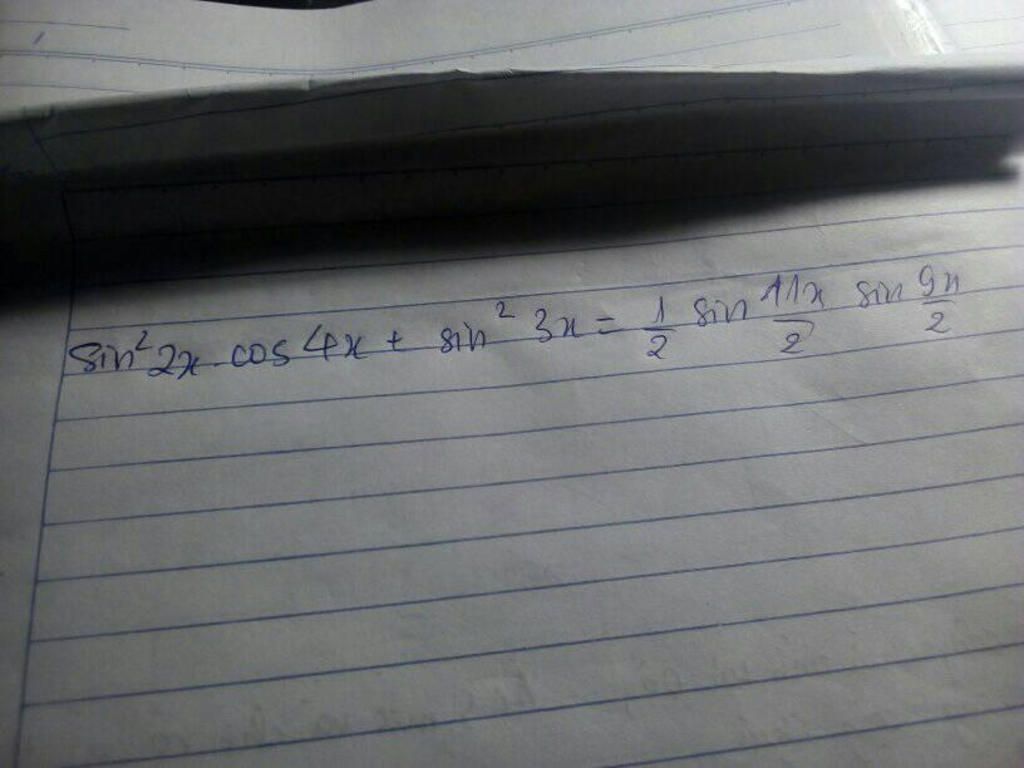 sin² 2x . cos 4x + sin² 3x = \frac{1}{2} sin \frac{11x}{2} sin \frac{9x}{2}